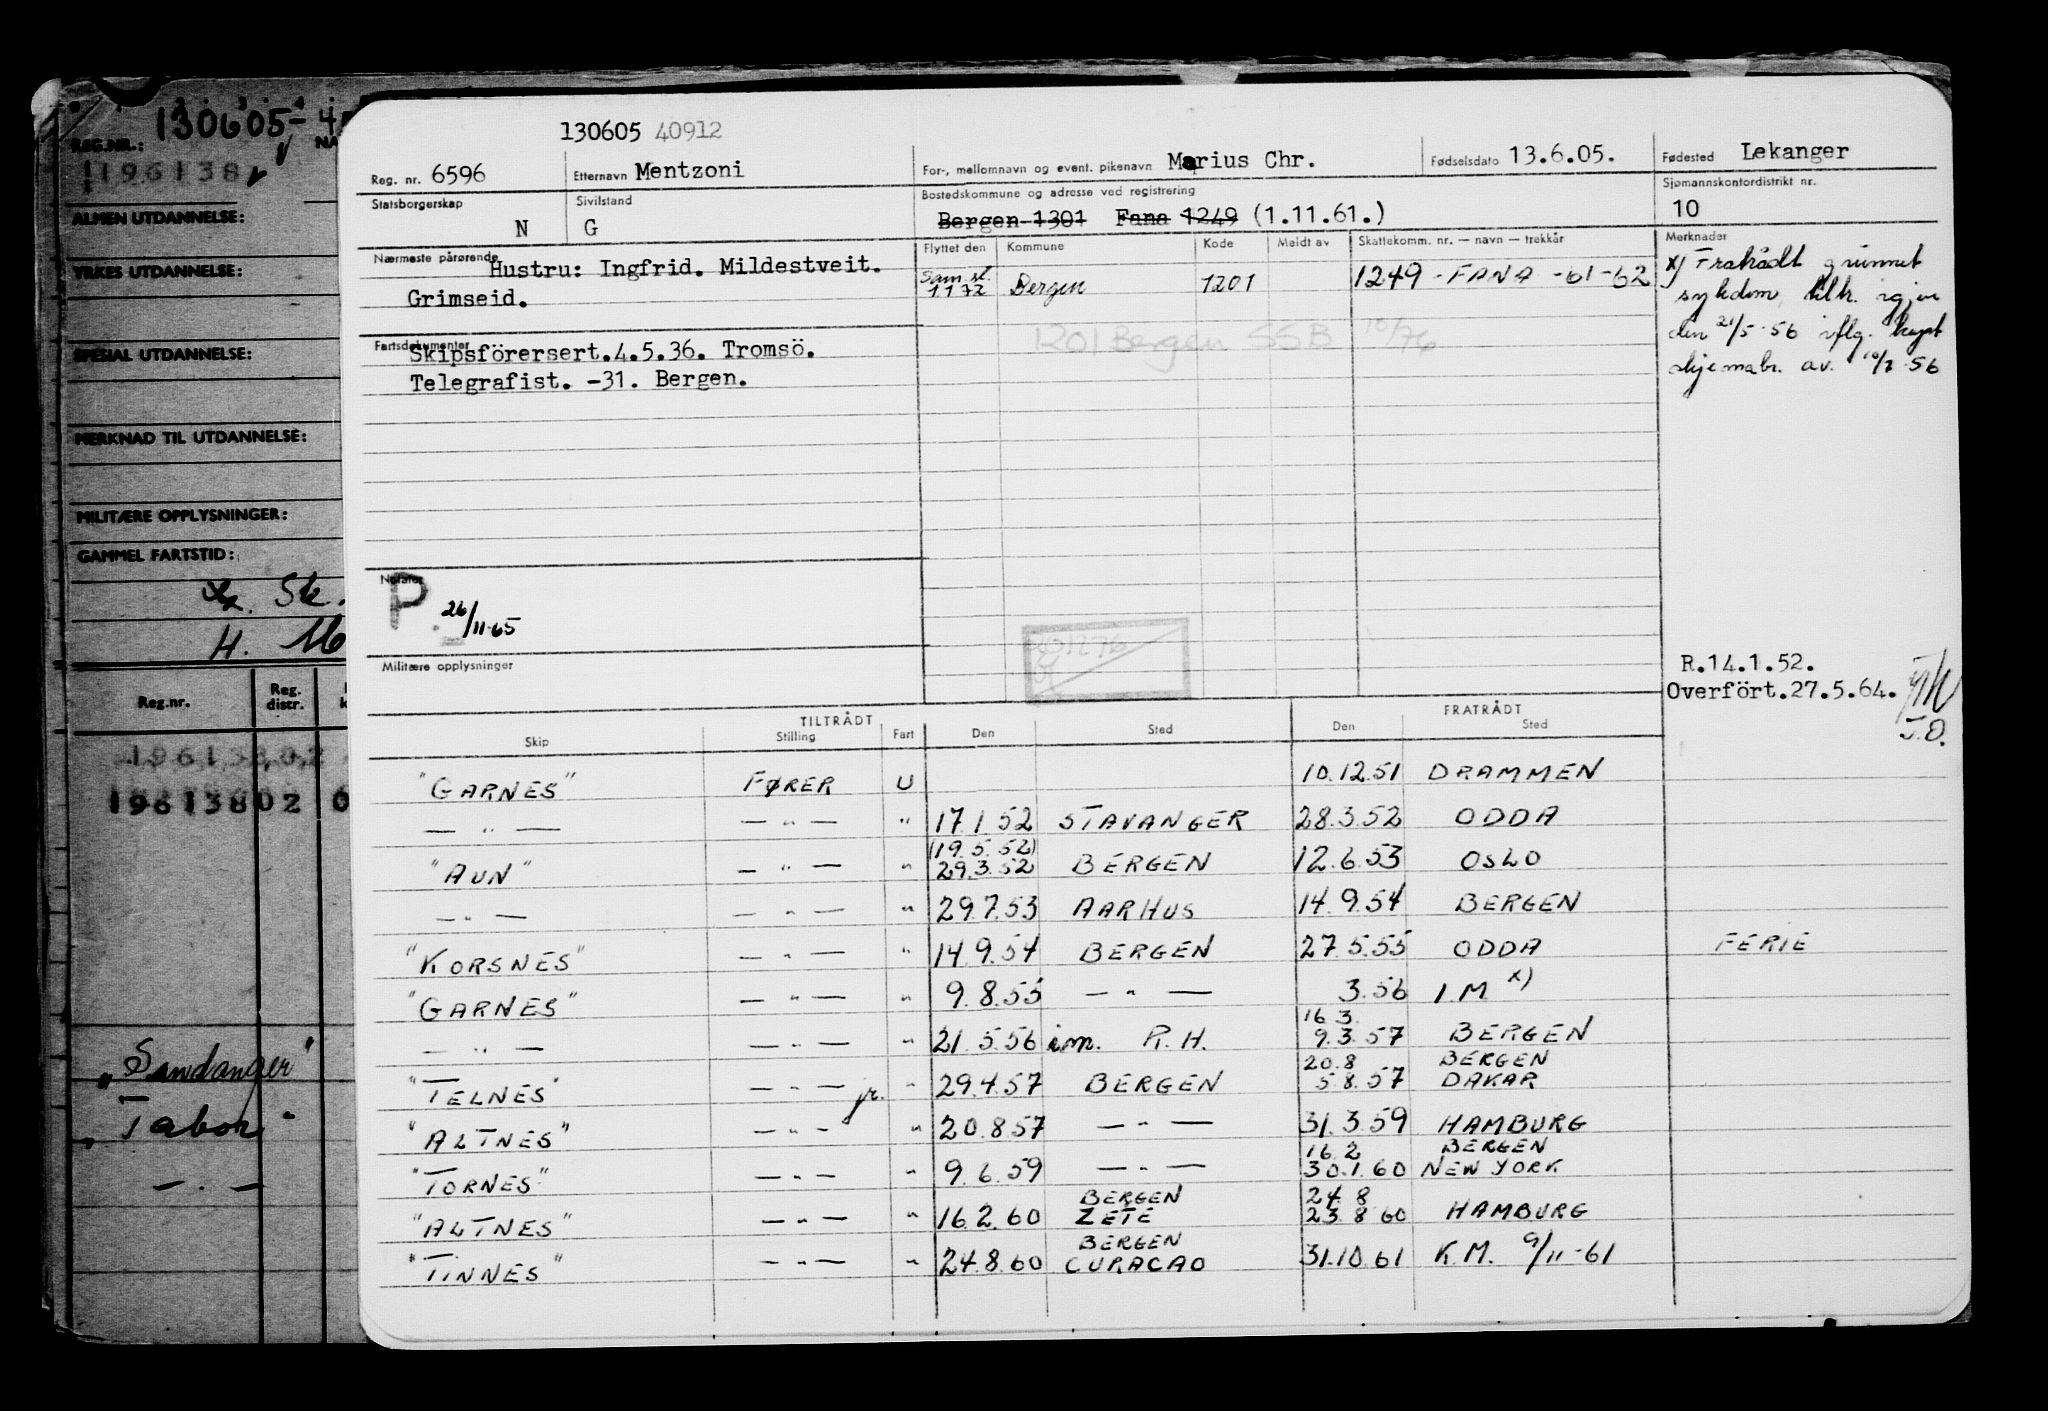 130605-
REG.NR.:
196138
ALMEN UTDANNELSE:
YRKES UTDANNELSE:
SPESIAL UTDANNELSE:
MERKNAD TIL UTDANNELSE:
MILITÆRE OPPLYSNINGER:
GAMMEL FARTSTID:
Sk.
H.
Reg.nr. Reg. distr.
196138,0,2
19613802 0
"Sandanger"
"Tabor"
— " —
130605 40912
Reg. nr. 6596 Etternavn Mentzoni For-, mellomnavn og event. pikenavn Marius Chr. Fødselsdato 13.6.05. Fødested Lekanger
Statsborgerskap N Sivilstand G Bostedskommune og adresse ved registrering Bergen 1301 Fana 1249 (1.11.61.) Sjømannskontordistrikt nr. 10
Nærmeste pårørende Hustru: Ingfrid. Mildestveit.
Grimseid.
Flyttet den Kommune Kode Meldt av Skattekomm. nr. — navn — trekkår Merknader
Sam.sl. 1 1 72 Bergen 1201 1249 - FANA -61-62
1201 Bergen SSB 10/76
x) Fratrådt grunnet
sykdom, tiltr. igjen
den 21/5-56 iflg.
skjemabr. av 56
Fartsdokumenter
Skipsförersert.4.5.36. Tromsö.
Telegrafist. -31. Bergen.
Notater
P. 26/11-65
Militære opplysninger
R.14.1.52.
Overfört.27.5.64.
J.O.
TILTRÅDT FRATRÅDT
Skip Stilling Fart Den Sted Den Sted
"GARNES" FØRER U 10.12.51 DRAMMEN
— " — — " — " 17.1.52 STAVANGER 28.3.52 ODDA
(19.5.52)
"AUN" — " — " 29.3.52 BERGEN 12.6.53 OSLO
— " — — " — " 29.7.53 AARHUS 14.9.54 BERGEN
"KORSNES" — " — " 14.9.54 BERGEN 27.5.55 ODDA FERIE
"GARNES" — " — " 9.8.55 — " — 3.56 I.M. x)
16 3.
— " — — " — " 21.5.56 im. R.H. 9.3.57 BERGEN
20.8 BERGEN
"TELNES" — " — jr. " 29.4.57 BERGEN 5.8.57 DAKAR
"ALTNES" — " — " 20.8.57 — " — 31.3.59 HAMBURG
16.2 BERGEN
"TORNES" — " — " 9.6.59 — " — 30.1.60 NEW YORK
BERGEN 24.8
"ALTNES" — " — " 16.2.60 ZETE 23.8.60 HAMBURG
BERGEN
"TINNES" — " — " 24.8.60 CURACAO 31.10.61 K.M. 9/11-61